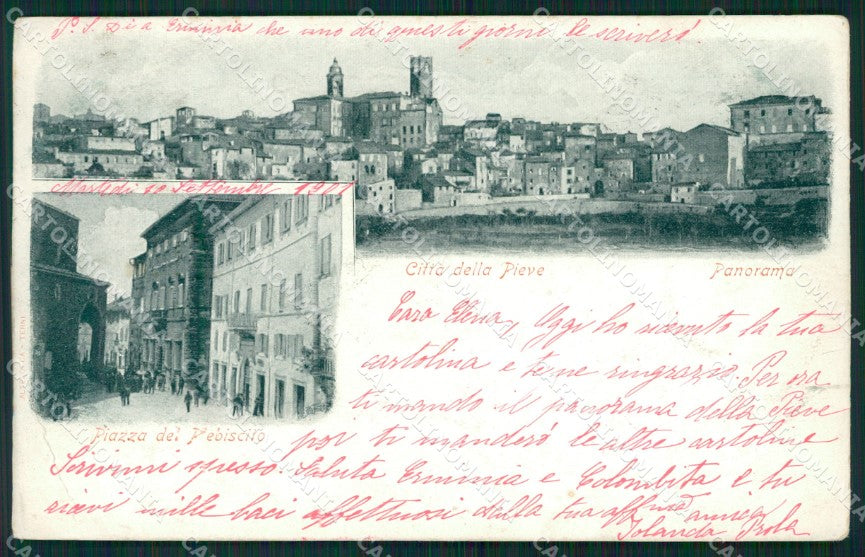 P. S. Di a Erminia che uno di questi giorni le scriverò
Martedì 10 Settembre 1901
Città della Pieve Panorama
Piazza del Plebiscito
Cara Elena, Oggi ho ricevuto la tua
cartolina e te ne ringrazio Per ora
ti mando il panorama della Pieve
poi ti manderò le altre cartoline
Scrivimi spesso. Saluta Erminia e Colombita e tu
ricevi mille baci affettuosi dalla tua aff.ma amica
Iolanda
CARTOLINOMANIA